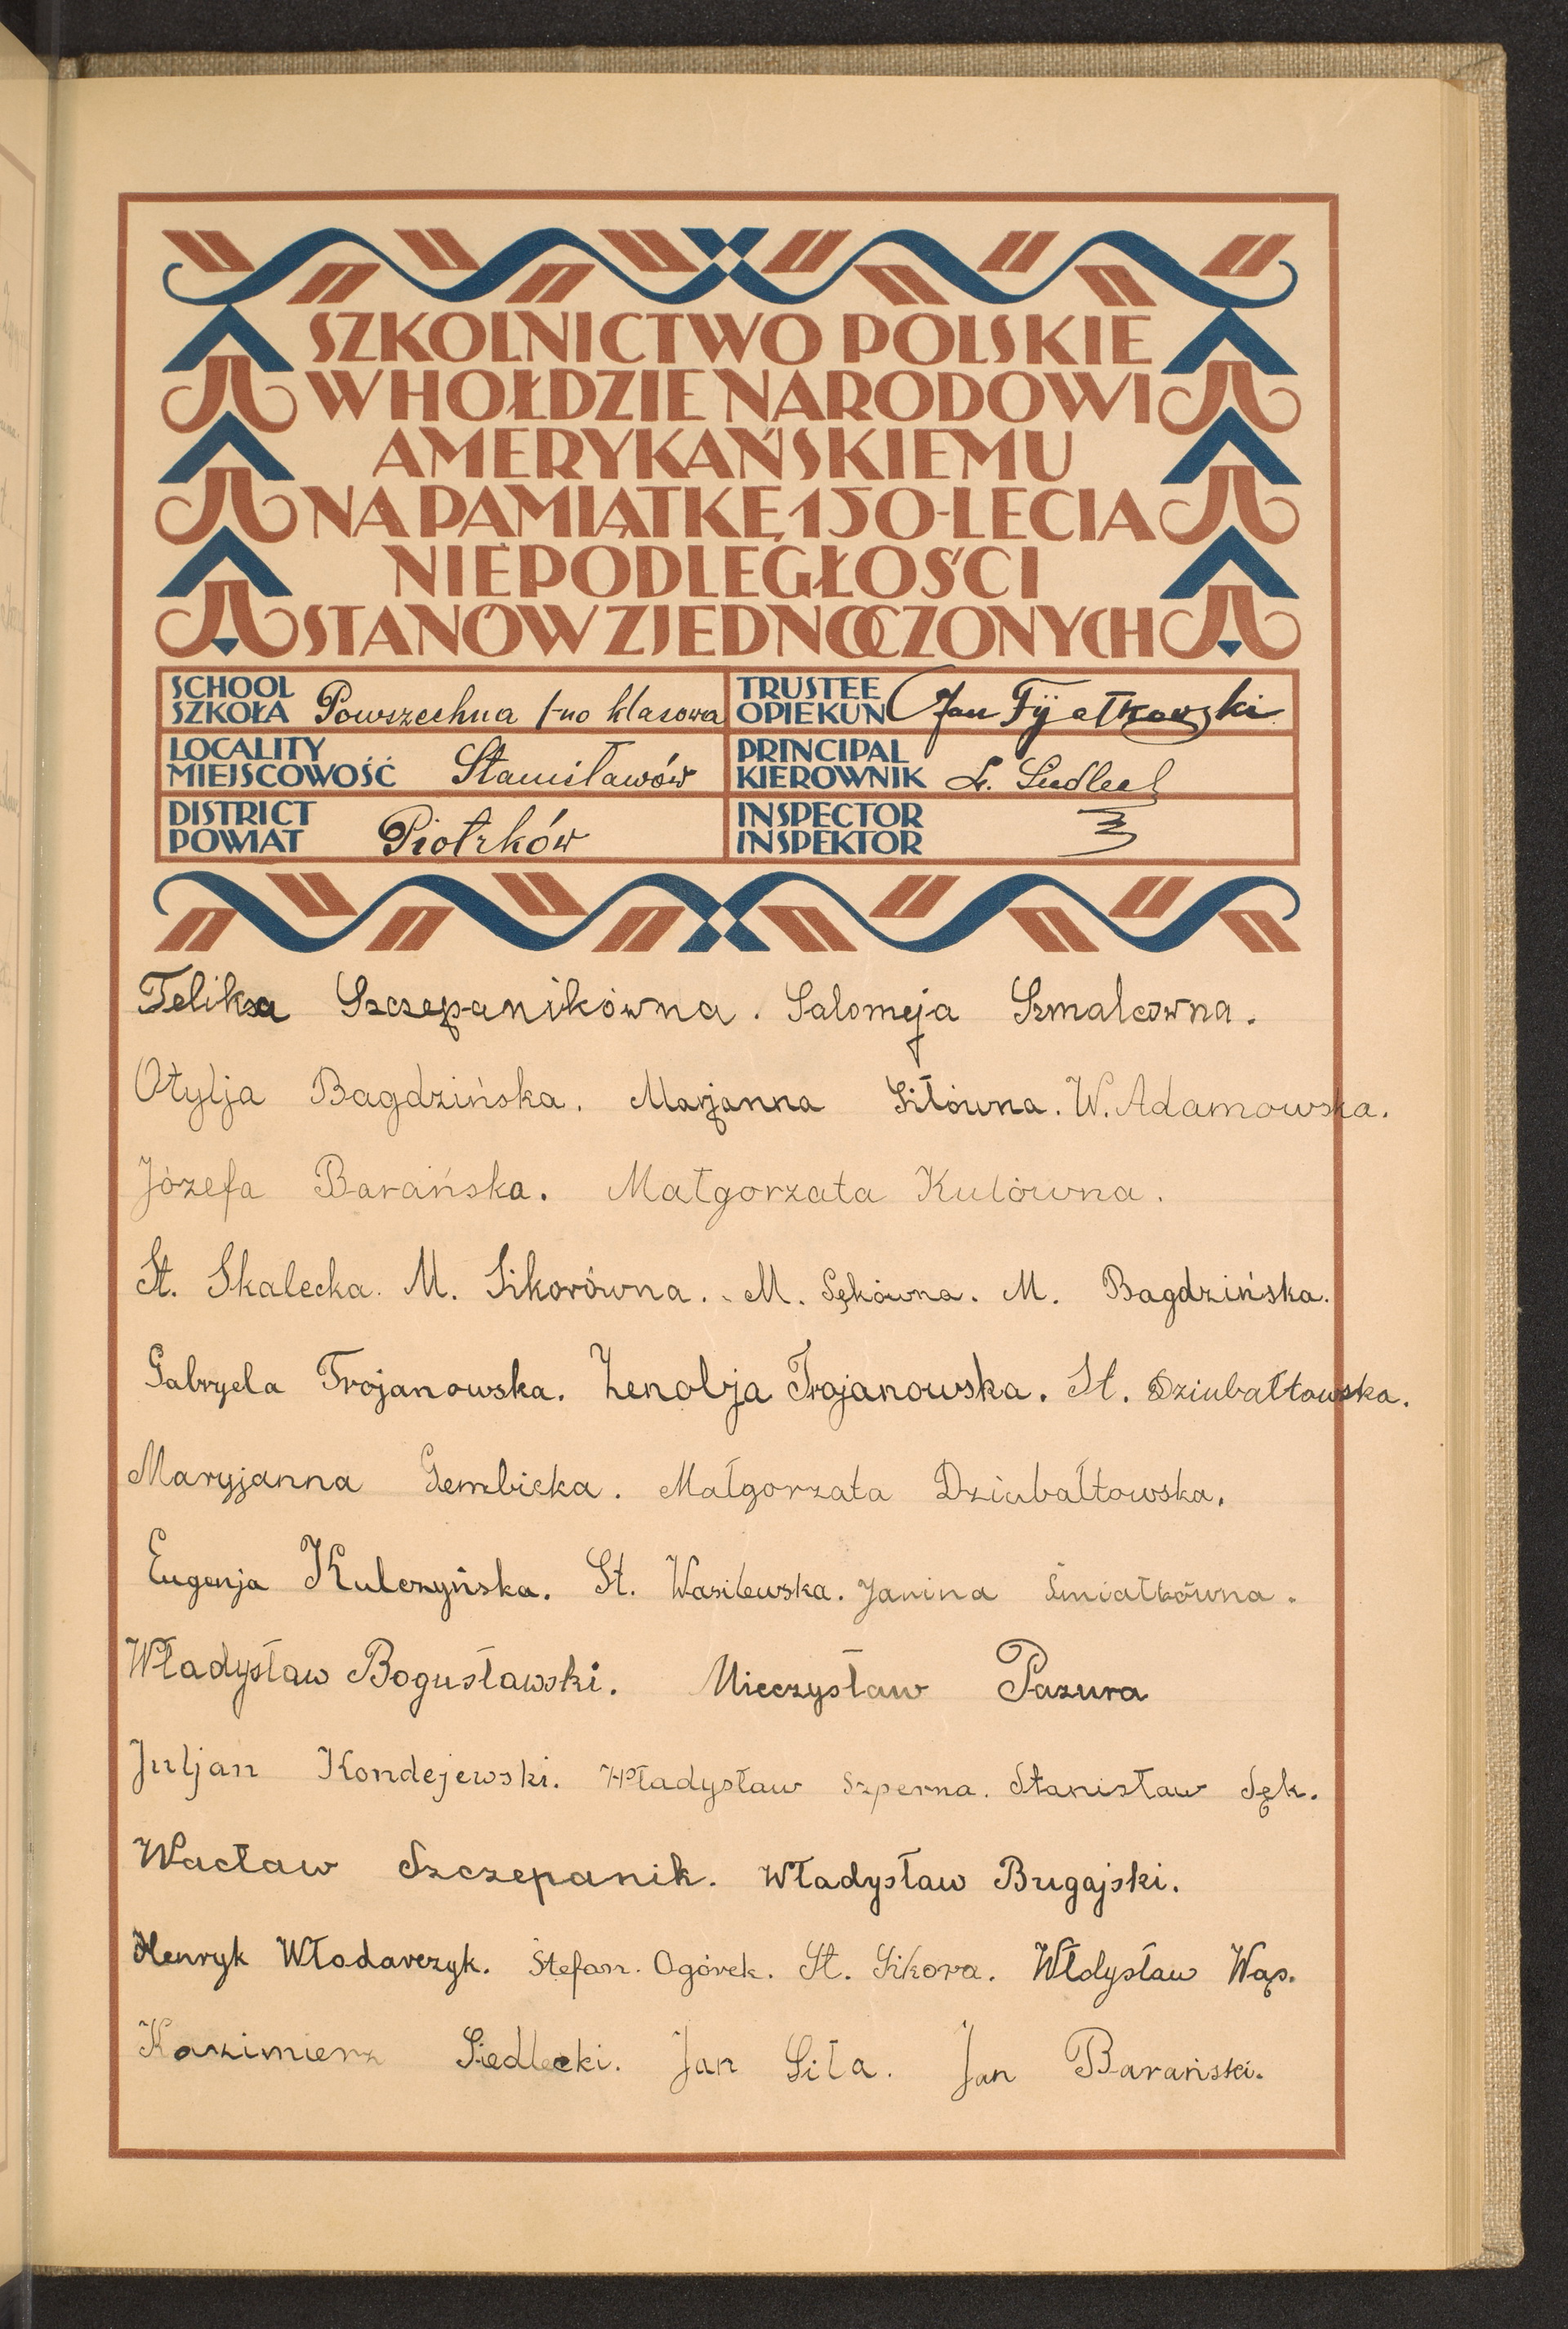 SZKOLNICTWO POLSKIE
W HOŁDZIE NARODOWI
AMERYKAŃSKIEMU
NA PAMIĄTKĘ 150-LECIA
NIEPODLEGŁOŚCI
STANÓW ZJEDNOCZONYCH
SCHOOL
SZKOŁA Powszechna 1-no klasowa
TRUSTEE
OPIEKUN Jan Fijałkowski
LOCALITY
MIEJSCOWOŚĆ Stanisławów
PRINCIPAL
KIEROWNIK
DISTRICT
POWIAT Piotrków
INSPECTOR
INSPEKTOR
Feliksa Szczepanikówna. Salomeja Szmalcówna.
Otylja Bagdzińska. Marjanna Siłówna. W. Adamowska.
Józefa Barańska. Małgorzata Kulówna.
St. Skalecka. M. Sikorówna. M. Sękówna. M. Bagdzińska.
Gabryela Trojanowska. Zenobja Trojanowska. St. Dziubałtowska.
Maryjanna Gembicka. Małgorzata Dziubałtowska.
Eugenja Kulczyńska. St. Wasilewska. Janina Śmiałkówna.
Władysław Bogusławski. Mieczysław Pazura
Juljan Kondejewski. Władysław Szperna. Stanisław Sęk.
Wacław Szczepanik. Władysław Bugajski.
Henryk Włodarczyk. Stefan. Ogórek. St. Sikora. Włdysław Wąs.
Kazimierz Siedlecki. Jan Siła. Jan Barański.